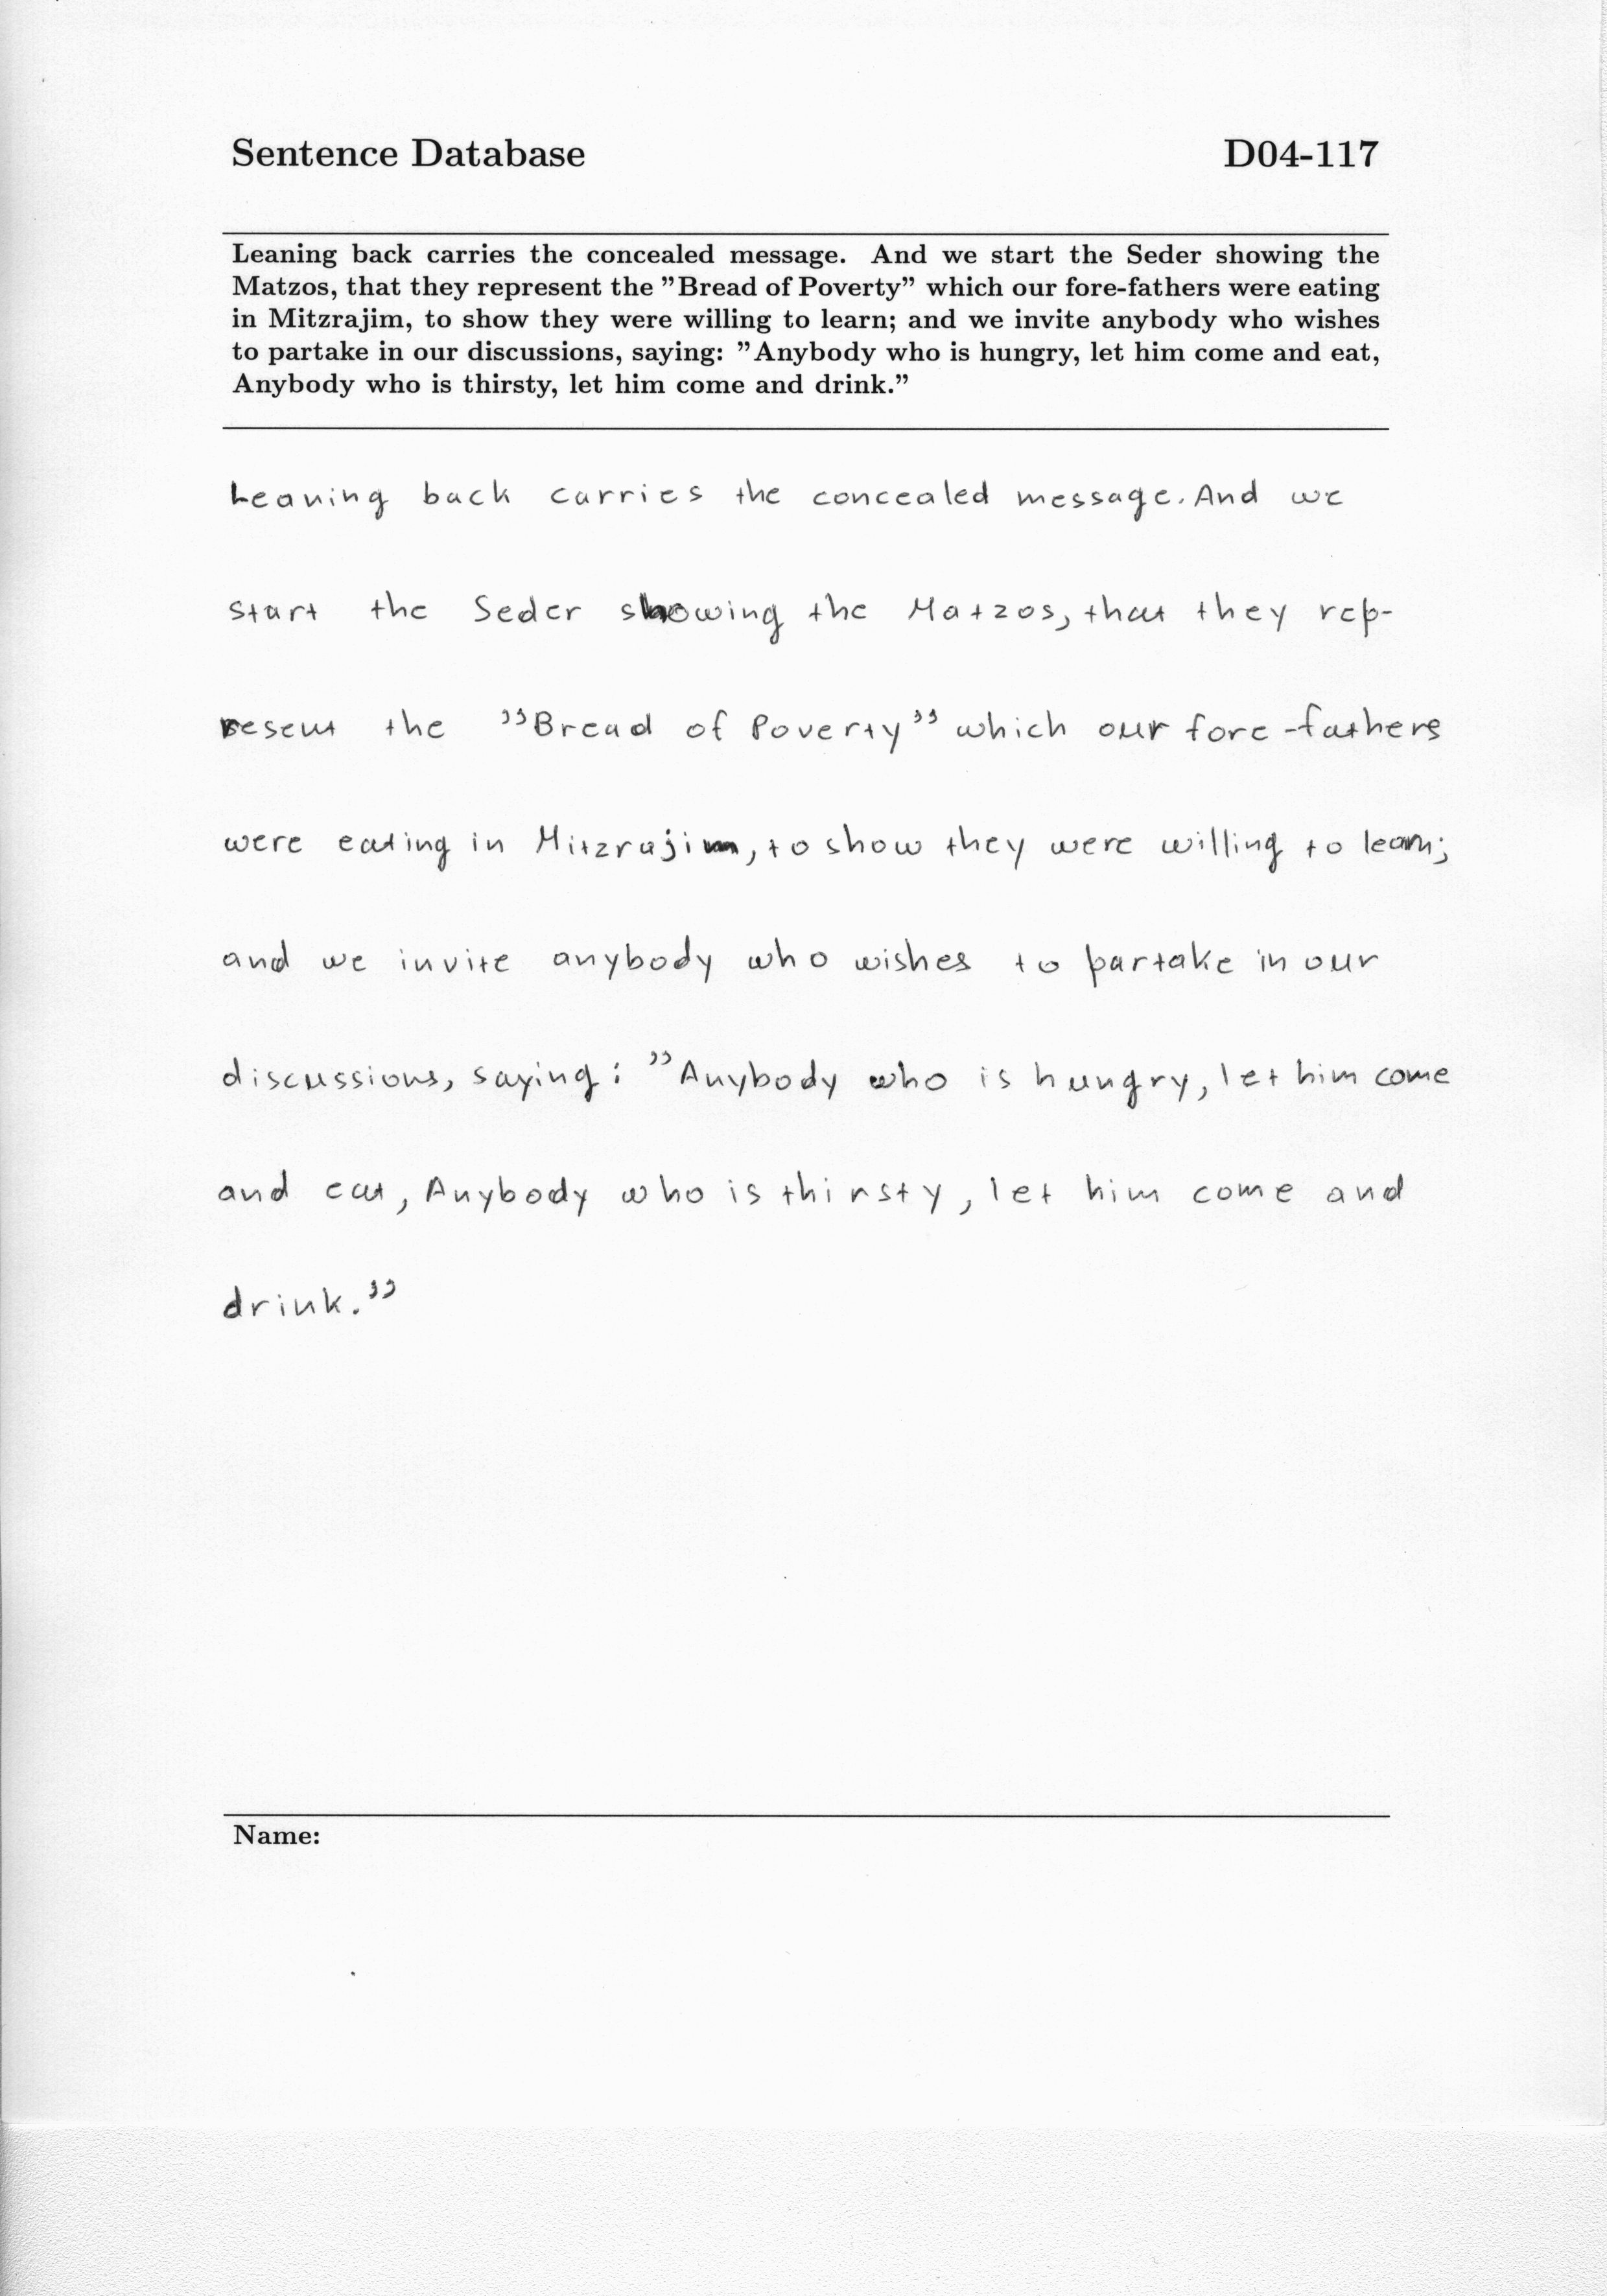 Sentence Database D04-117
Leaning back carries the concealed message. And we start the Seder showing the
Matzos, that they represent the "Bread of Poverty" which our fore-fathers were eating
in Mitzrajim, to show they were willing to learn; and we invite anybody who wishes
to partake in our discussions, saying: "Anybody who is hungry, let him come and eat,
Anybody who is thirsty, let him come and drink."
Leaning back carries the concealed message. And we
start the Seder showing the Matzos, that they rep-
resent the "Bread of Poverty" which our fore-fathers
were eating in Mitzrajim, to show they were willing to learn;
and we invite anybody who wishes to partake in our
discussions, saying: "Anybody who is hungry, let him come
and eat, Anybody who is thirsty, let him come and
drink."
Name: